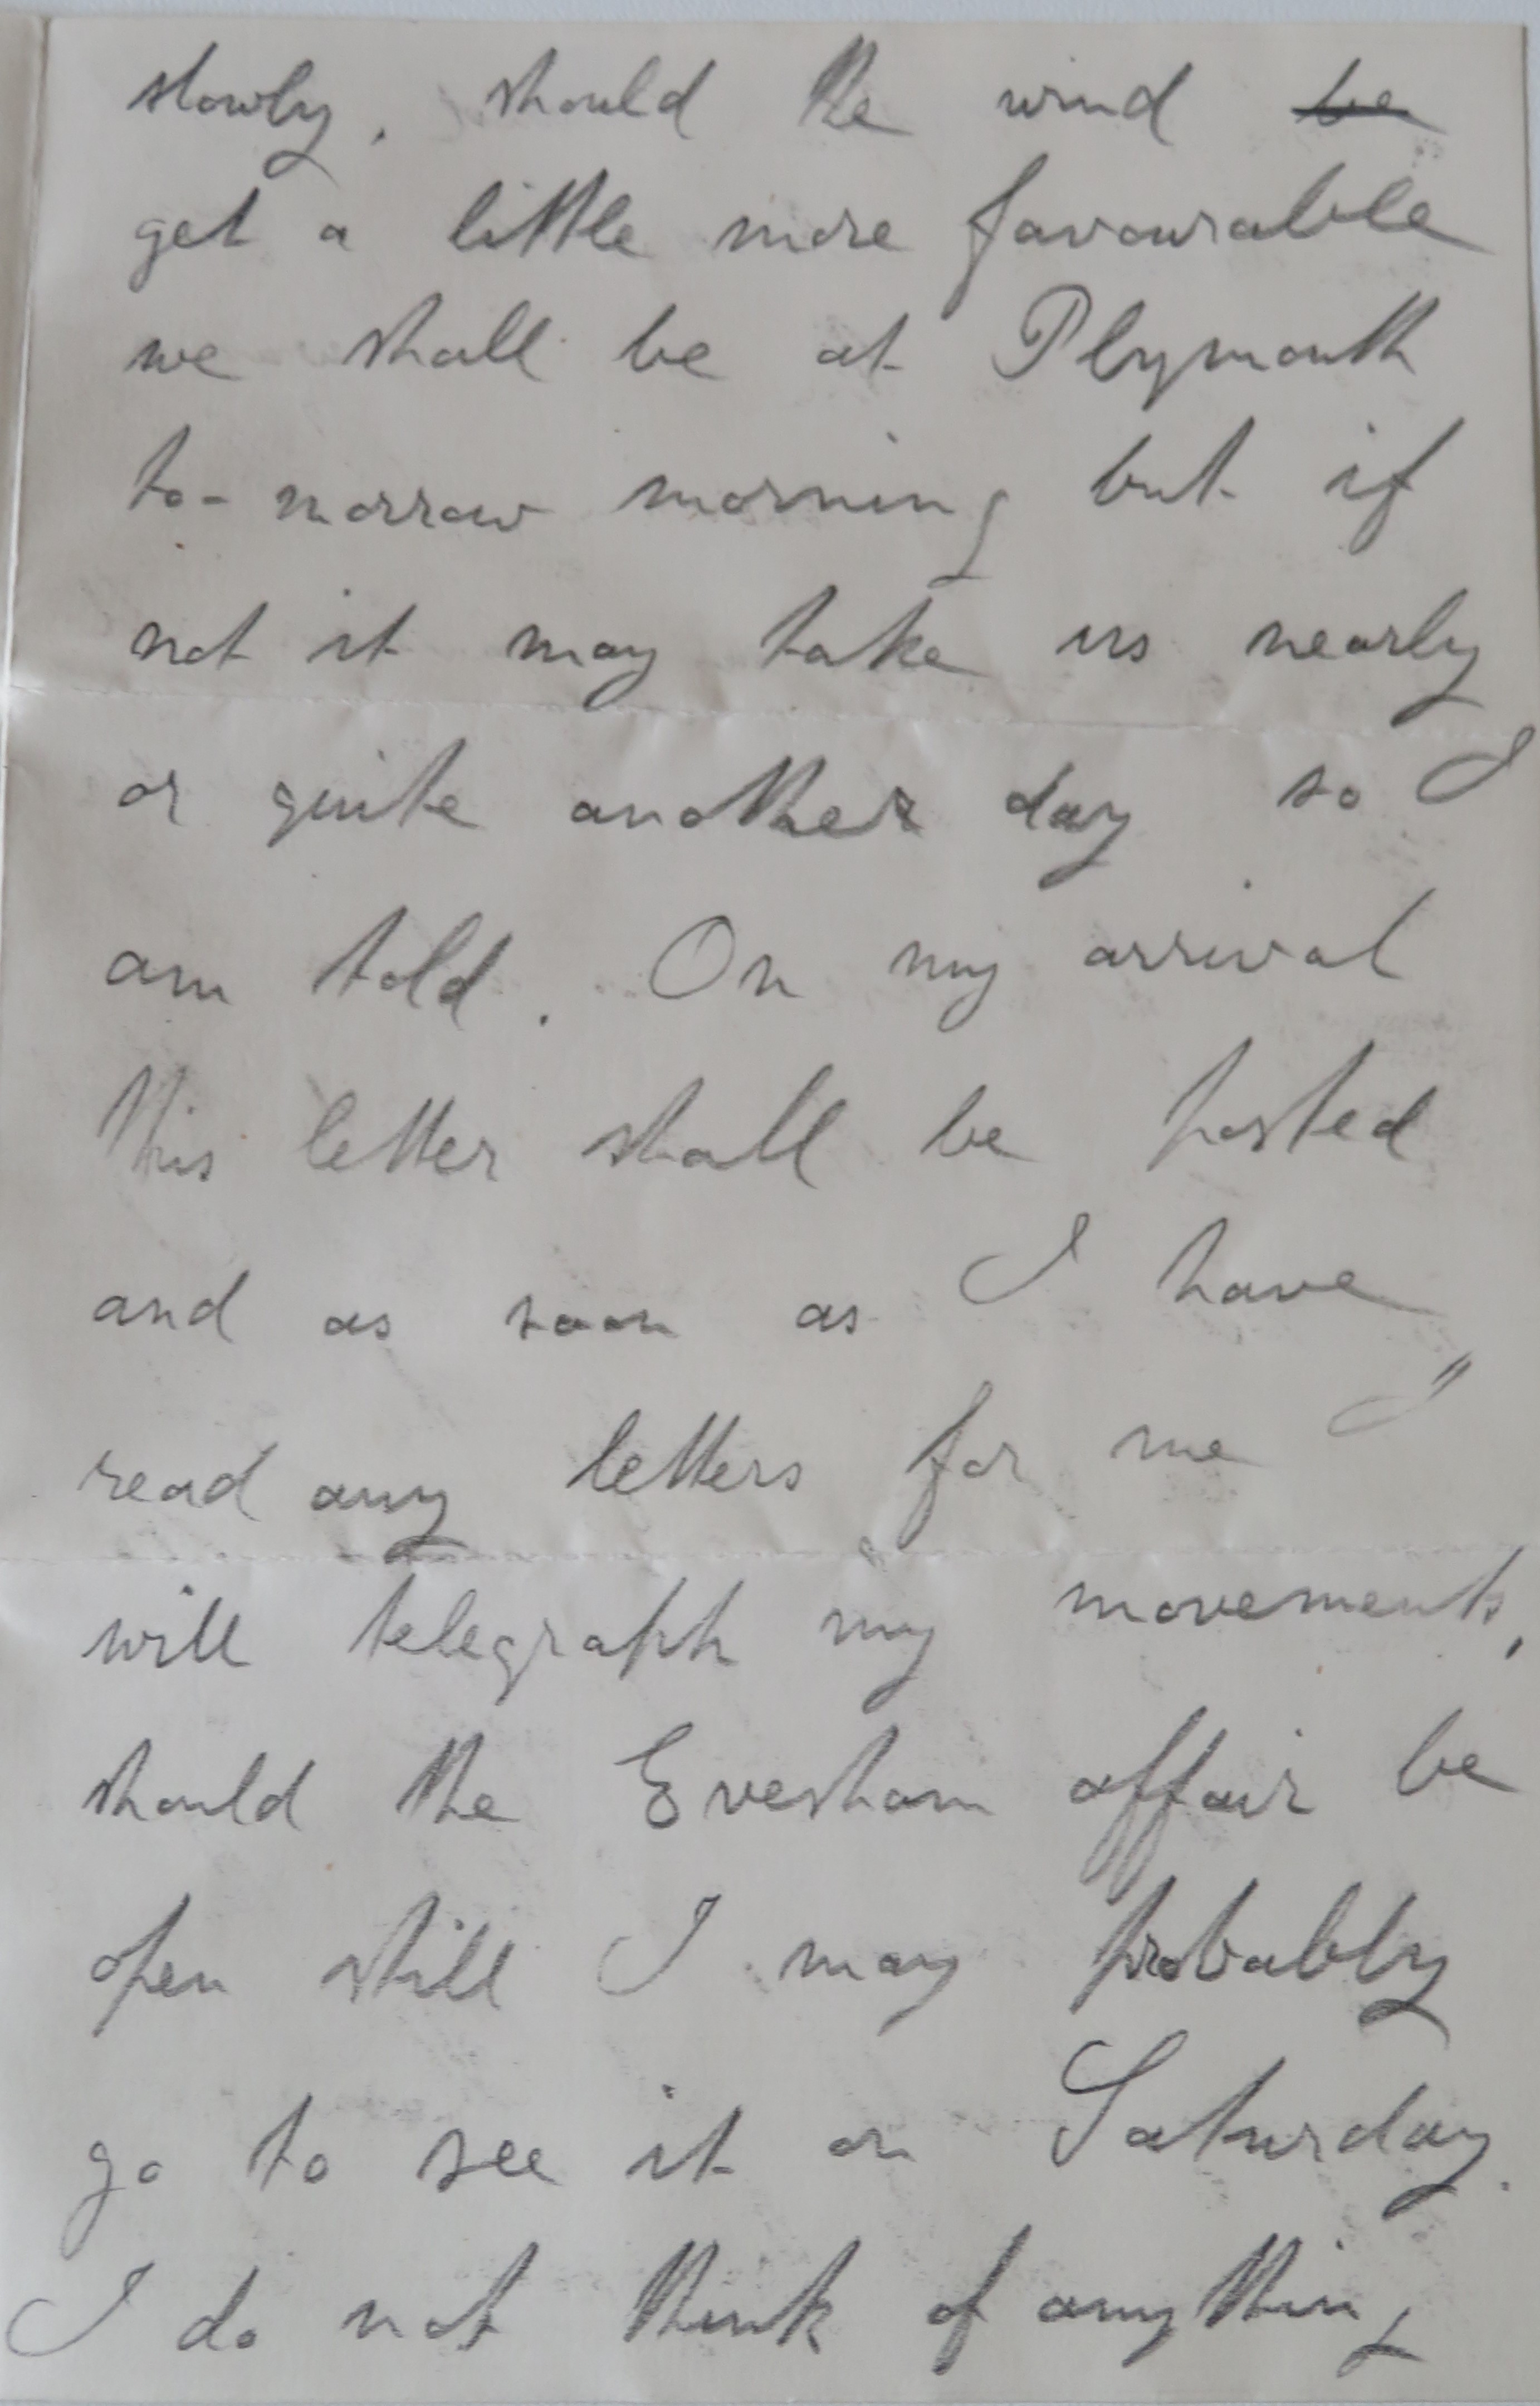 slowly. should the wind ~~be~~
get a little more favourable
we shall be at Plymouth
to-morrow morning but if
not it may take us nearly
or quite another day so I
am told. On my arrival
this letter shall be posted
and as soon as I have
read any letters for me I
will telegraph my movements,
should the Evesham affair be
open still I may probably
go to see it on Saturday.
I do not think of anything